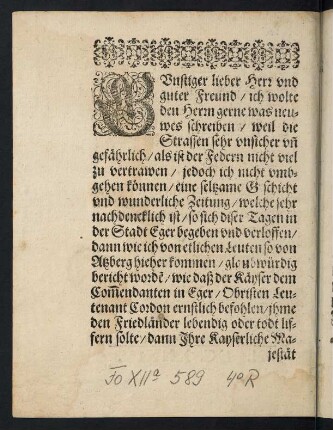 GUnstiger lieber Herr vnd
guter Freund / ich wolte
den Herrn gerne was neu-
wes schreiben / weil die
Strassen sehr vnsicher vñ
gefährlich / als ist der Federn nicht viel
zu vertrawen / jedoch ich nicht vmb-
gehen können / eine seltzame G schicht
vnd wunderliche Zeitung / welche sehr
nachdencklich ist / so sich diser Tagen in
der Stadt Eger begeben vnd verloffen /
dann wie ich von etlichen Leuten so von
Atzberg hieher kommen / gla ubwürdig
bericht wordē / wie daß der Käyser dem
Com̄endanten in Eger / Obristen Leu-
tenant Cordon ernstlich befohlen / jhme
den Friedländer lebendig oder todt lif-
fern solte / dann Ihre Kayserliche Ma-
jestät
Fo XIIa 589 4o R